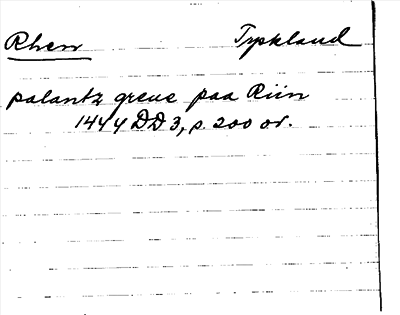 Rhen Tyskland
palantz greue paa Riin
1444 DD 3, s. 200 or.